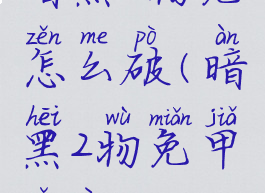 zěn me pò àn
怎么破(暗
hēi wù miǎn jiǎ
黑2物免甲